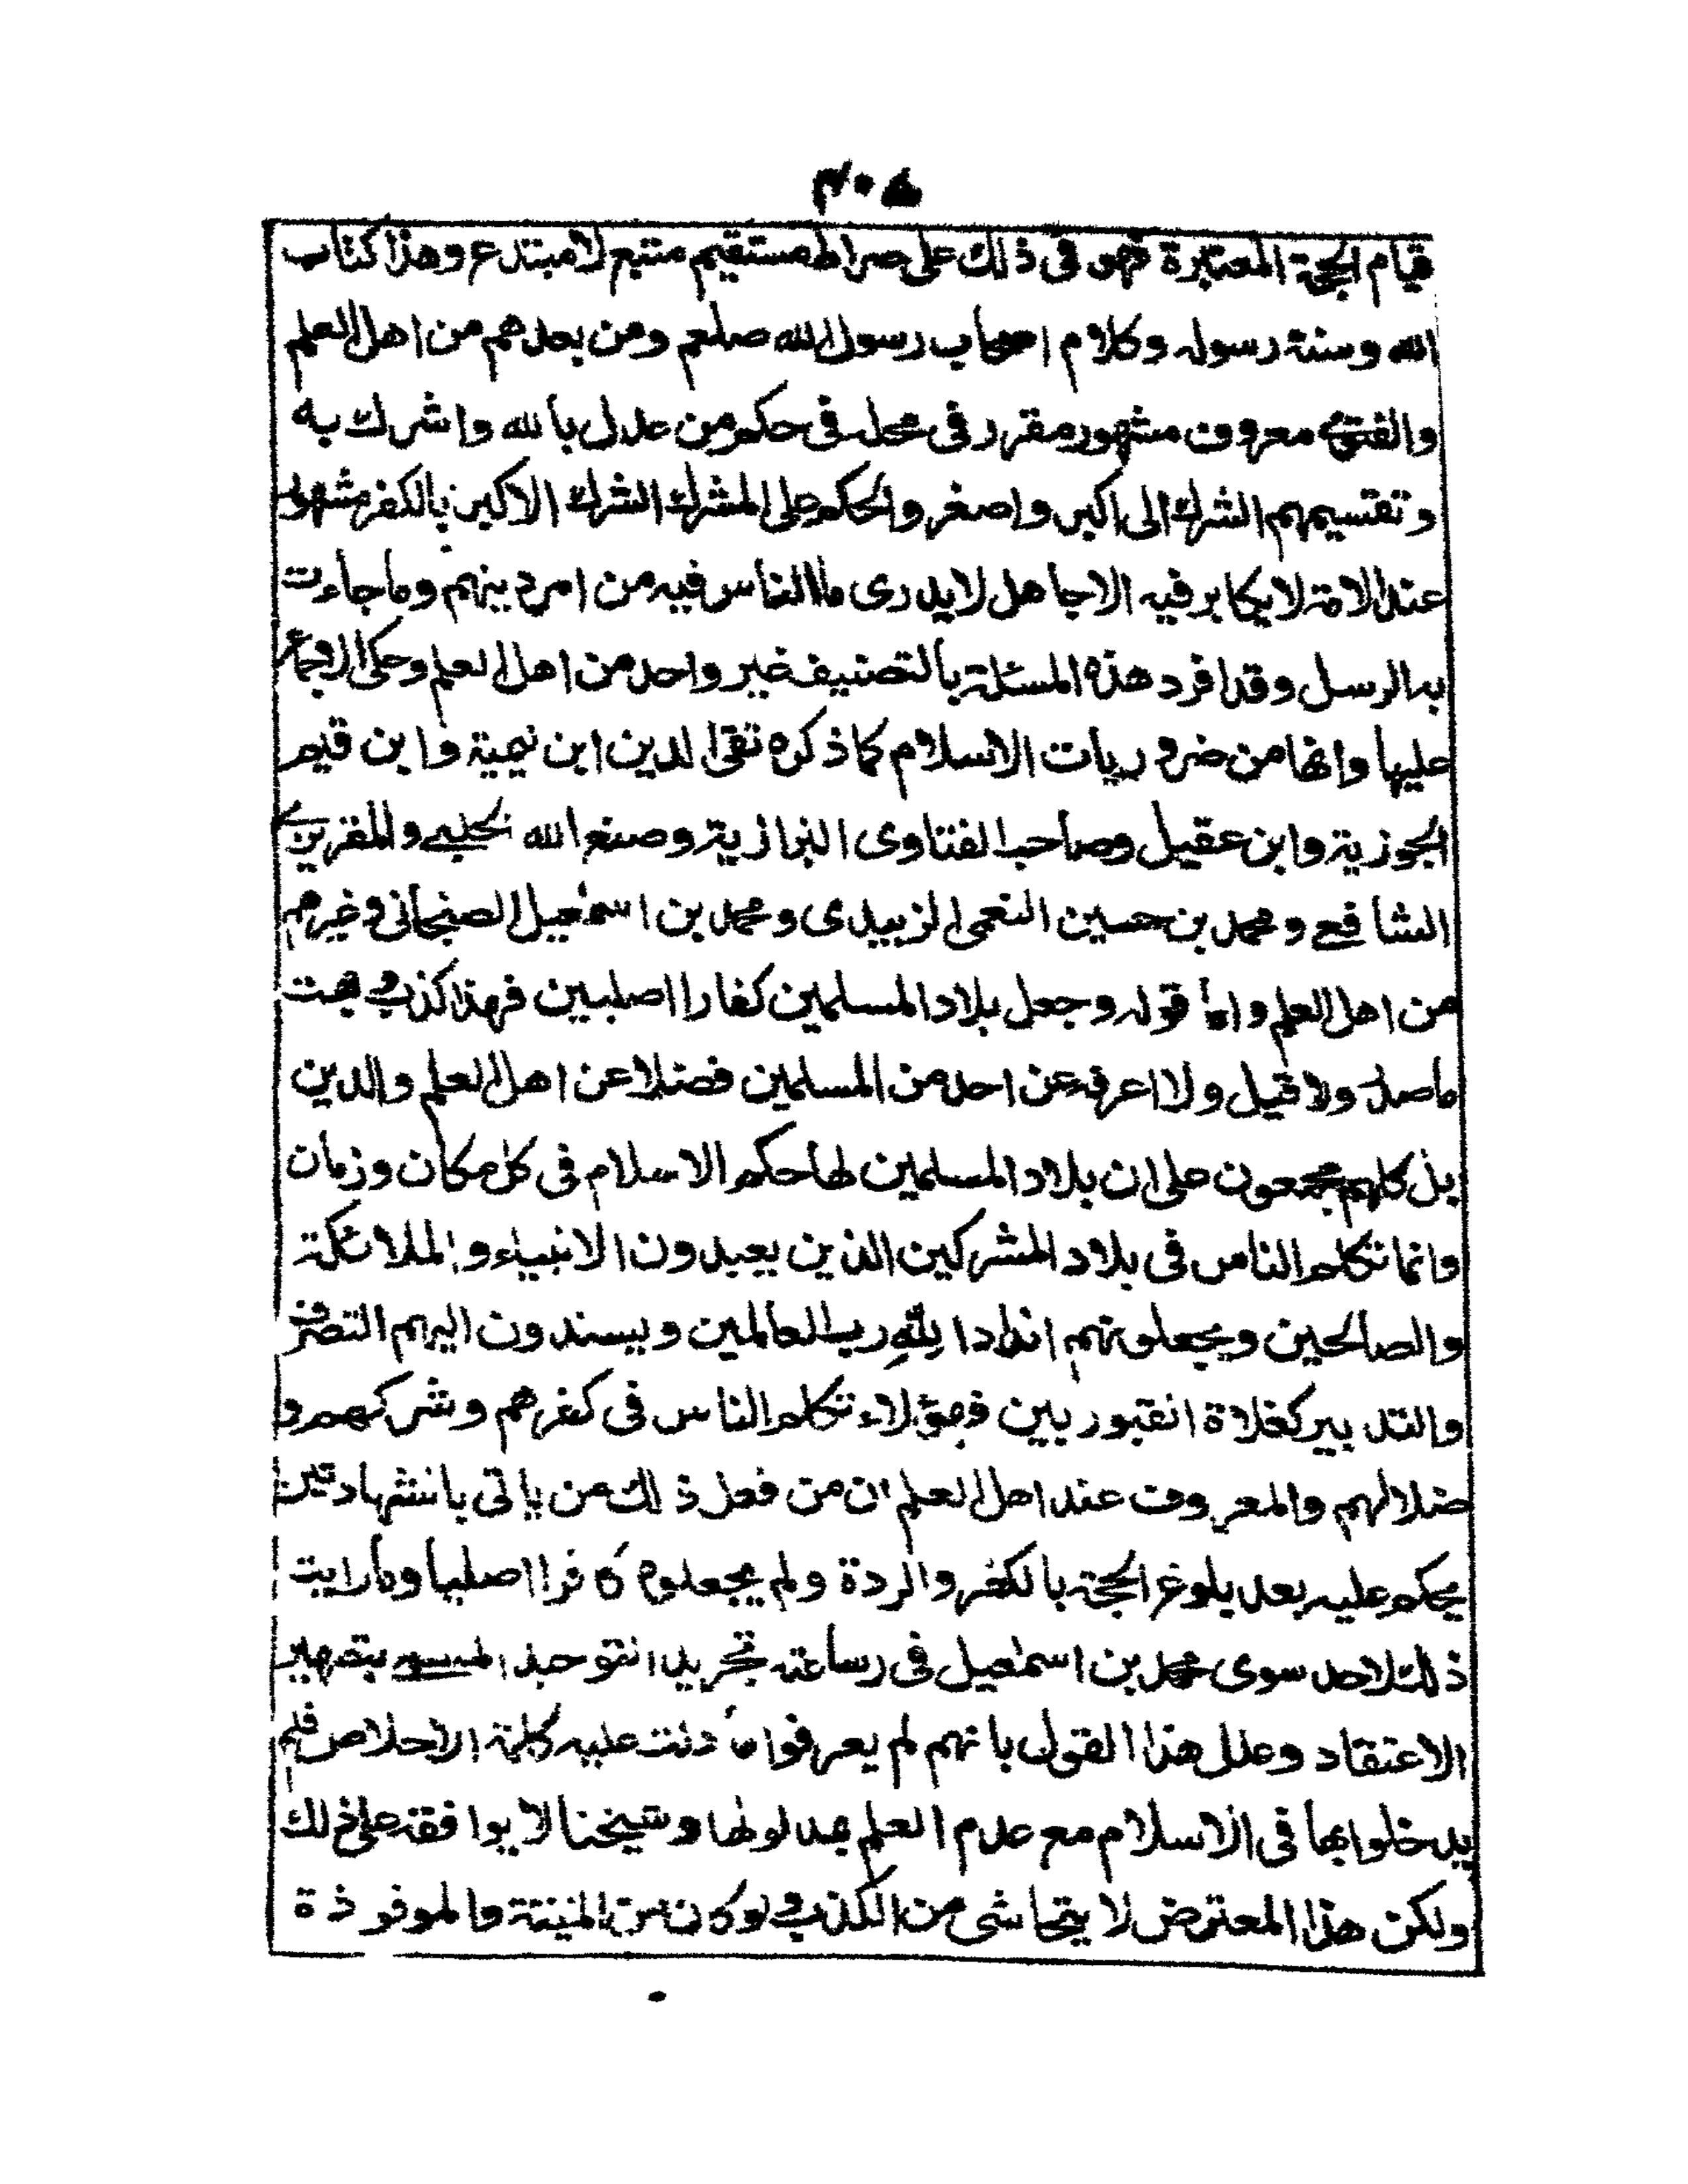 قيام الحجة المعتبرة فهو فى ذلك على صراط مستقيم متبع لا مبتدع وهذا كتاب
الله وسنة رسوله وكلام اصحاب رسول الله صلعم ومن بعدهم من اهل العلم
والفتوى معروف مشهور مقرر فى محله فى حكم من عدل بالله واشرك به
وتقسيمهم الشرك الى اكبر واصغر والحكم على المشرك الشرك الاكبر بالكفر مشهور
عند الامة لا يكابر فيه الا جاهل لا يدرى ما الناس فيه من امر دينهم وما جاءت
به الرسل وقد افرد هذه المسئلة بالتصنيف غير واحد من اهل العلم وحكى الاجماع
عليها وانها من ضروريات الاسلام كما ذكره تقى الدين ابن تيمية وابن قيم
الجوزية وابن عقيل وصاحب الفتاوى البزازية وصنع الله الحلبى والمقريزى
الشافعى ومحمد بن حسين النعمى الزبيدى ومحمد بن اسمعيل الصنعانى وغيرهم
من اهل العلم واما قوله وجعل بلاد المسلمين كفارا اصليين فهذا كذب وبهت
ما صدر ولا قيل ولا اعرفه عن احد من المسلمين فضلا عن اهل العلم والدين
بل كلهم مجمعون على ان بلاد المسلمين لها حكم الاسلام فى كل مكان وزمان
وانما تكلم الناس فى بلاد المشركين الذين يعبدون الانبياء والملائكة
والصالحين ويجعلونهم اندادا لله رب العالمين ويسندون اليهم التصرف
والتدبير كغلاة القبوريين فهؤلاء تكلم الناس فى كفرهم وشركهم و
ضلالهم والمعروف عند اهل العلم ان من فعل ذلك من ياتى بالشهادتين
يحكم عليه بعد بلوغ الحجة بالكفر والردة ولم يجعلوه كافرا اصليا وما رايت
ذلك لاحد سوى محمد بن اسمعيل فى رسالته تجريد التوحيد المسمى بتطهير
الاعتقاد وعلل هذا القول بانهم لم يعرفوا ما دلت عليه كلمة الاخلاص فلم
يدخلوا بها فى الاسلام مع عدم العلم بمدلولها وشيخنا لا يوافقه على ذلك
ولكن هذا المعترض لا يتحاشى من الكذب ولو كان من الميتة والموقوذة